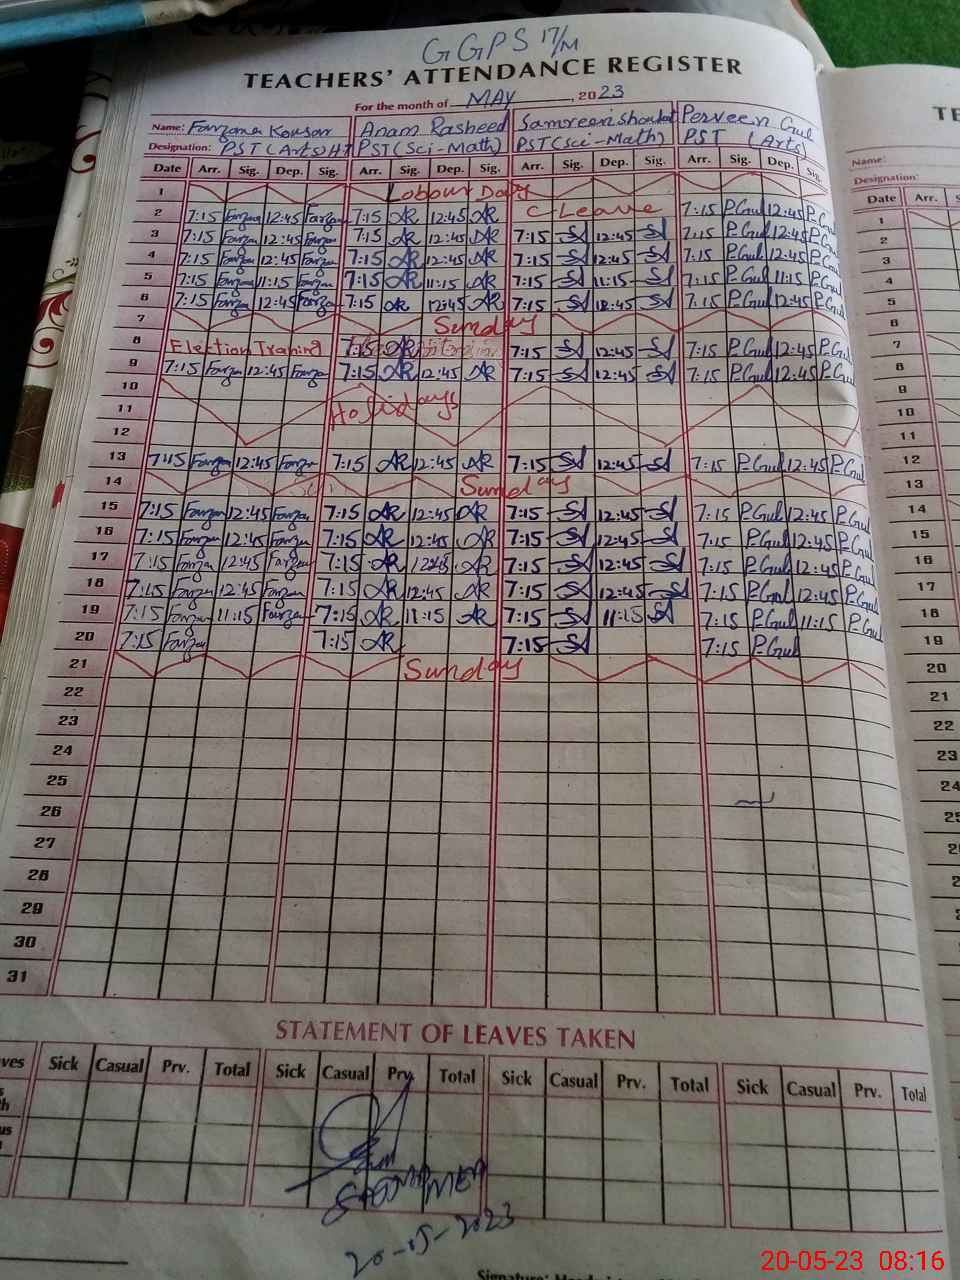 GGPS 17/M
TEACHERS' ATTENDANCE REGISTER
For the month of MAY, 2023
Name: Farzana Kousar Anam Rasheed Samreen Shoukat Perveen Gul
Designation: PST (Arts) HT PST (Sci-Math) PST (Sci-Math) PST (Arts)
Date Arr. Sig. Dep. Sig. Arr. Sig. Dep. Sig. Arr. Sig. Dep. Sig. Arr. Sig. Dep. Sig.
1 Labour Day
2 7:15 Farzana 12:45 Farzana 7:15 AR 12:45 AR C-Leave 7:15 P.Gul 12:45 P.Gul
3 7:15 Farzan 12:45 Farzan 7:15 AR 12:45 AR 7:15 SA 12:45 SA 7:15 P.Gul 12:45 P.Gul
4 7:15 Farzan 12:45 Farzan 7:15 AR 12:45 AR 7:15 SA 12:45 SA 7:15 P.Gul 12:45 P.Gul
5 7:15 Farzan 11:15 Farzan 7:15 AR 11:15 AR 7:15 SA 11:15 SA 7:15 P.Gul 11:15 P.Gul
6 7:15 Farzan 12:45 Farzan 7:15 AR 12:45 AR 7:15 SA 12:45 SA 7:15 P.Gul 12:45 P.Gul
7 Sunday
8 Election Traning 7:15 AR 7:15 SA 12:45 SA 7:15 P.Gul 12:45 P.Gul
9 7:15 Farzan 12:45 Farzan 7:15 AR 12:45 AR 7:15 SA 12:45 SA 7:15 P.Gul 12:45 P.Gul
10
11 Holidays
12
13 7:15 Farzan 12:45 Farzan 7:15 AR 12:45 AR 7:15 SA 12:45 SA 7:15 P.Gul 12:45 P.Gul
14 Sunday
15 7:15 Farzan 12:45 Farzan 7:15 AR 12:45 AR 7:15 SA 12:45 SA 7:15 P.Gul 12:45 P.Gul
16 7:15 Farzan 12:45 Farzan 7:15 AR 12:45 AR 7:15 SA 12:45 SA 7:15 P.Gul 12:45 P.Gul
17 7:15 Farzan 12:45 Farzan 7:15 AR 12:45 AR 7:15 SA 12:45 SA 7:15 P.Gul 12:45 P.Gul
18 7:15 Farzan 12:45 Farzan 7:15 AR 12:45 AR 7:15 SA 12:45 SA 7:15 P.Gul 12:45 P.Gul
19 7:15 Farzan 11:15 Farzan 7:15 AR 11:15 AR 7:15 SA 11:15 SA 7:15 P.Gul 11:15 P.Gul
20 7:15 Farzan 7:15 AR 7:15 SA 7:15 P.Gul
21 Sunday
22
23
24
25
26
27
28
29
30
31
STATEMENT OF LEAVES TAKEN
Sick Casual Prv. Total Sick Casual Prv. Total Sick Casual Prv. Total Sick Casual Prv. Total
20-05-2023
Name:
Designation:
Date Arr. Sig.
1
2
3
4
5
6
7
8
9
10
11
12
13
14
15
16
17
18
19
20
21
22
23
24
20-05-23 08:16